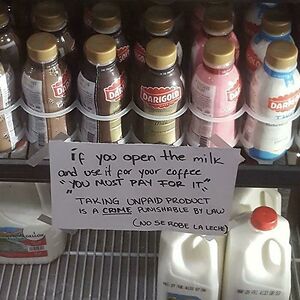 DARIGOLD
DARIGOLD
DARIGOLD
if you open the milk
and use it for your coffee
"YOU MUST PAY FOR IT"
TAKING UNPAID PRODUCT
IS A CRIME PUNISHABLE BY LAW
(NO SE ROBE LA LECHE)